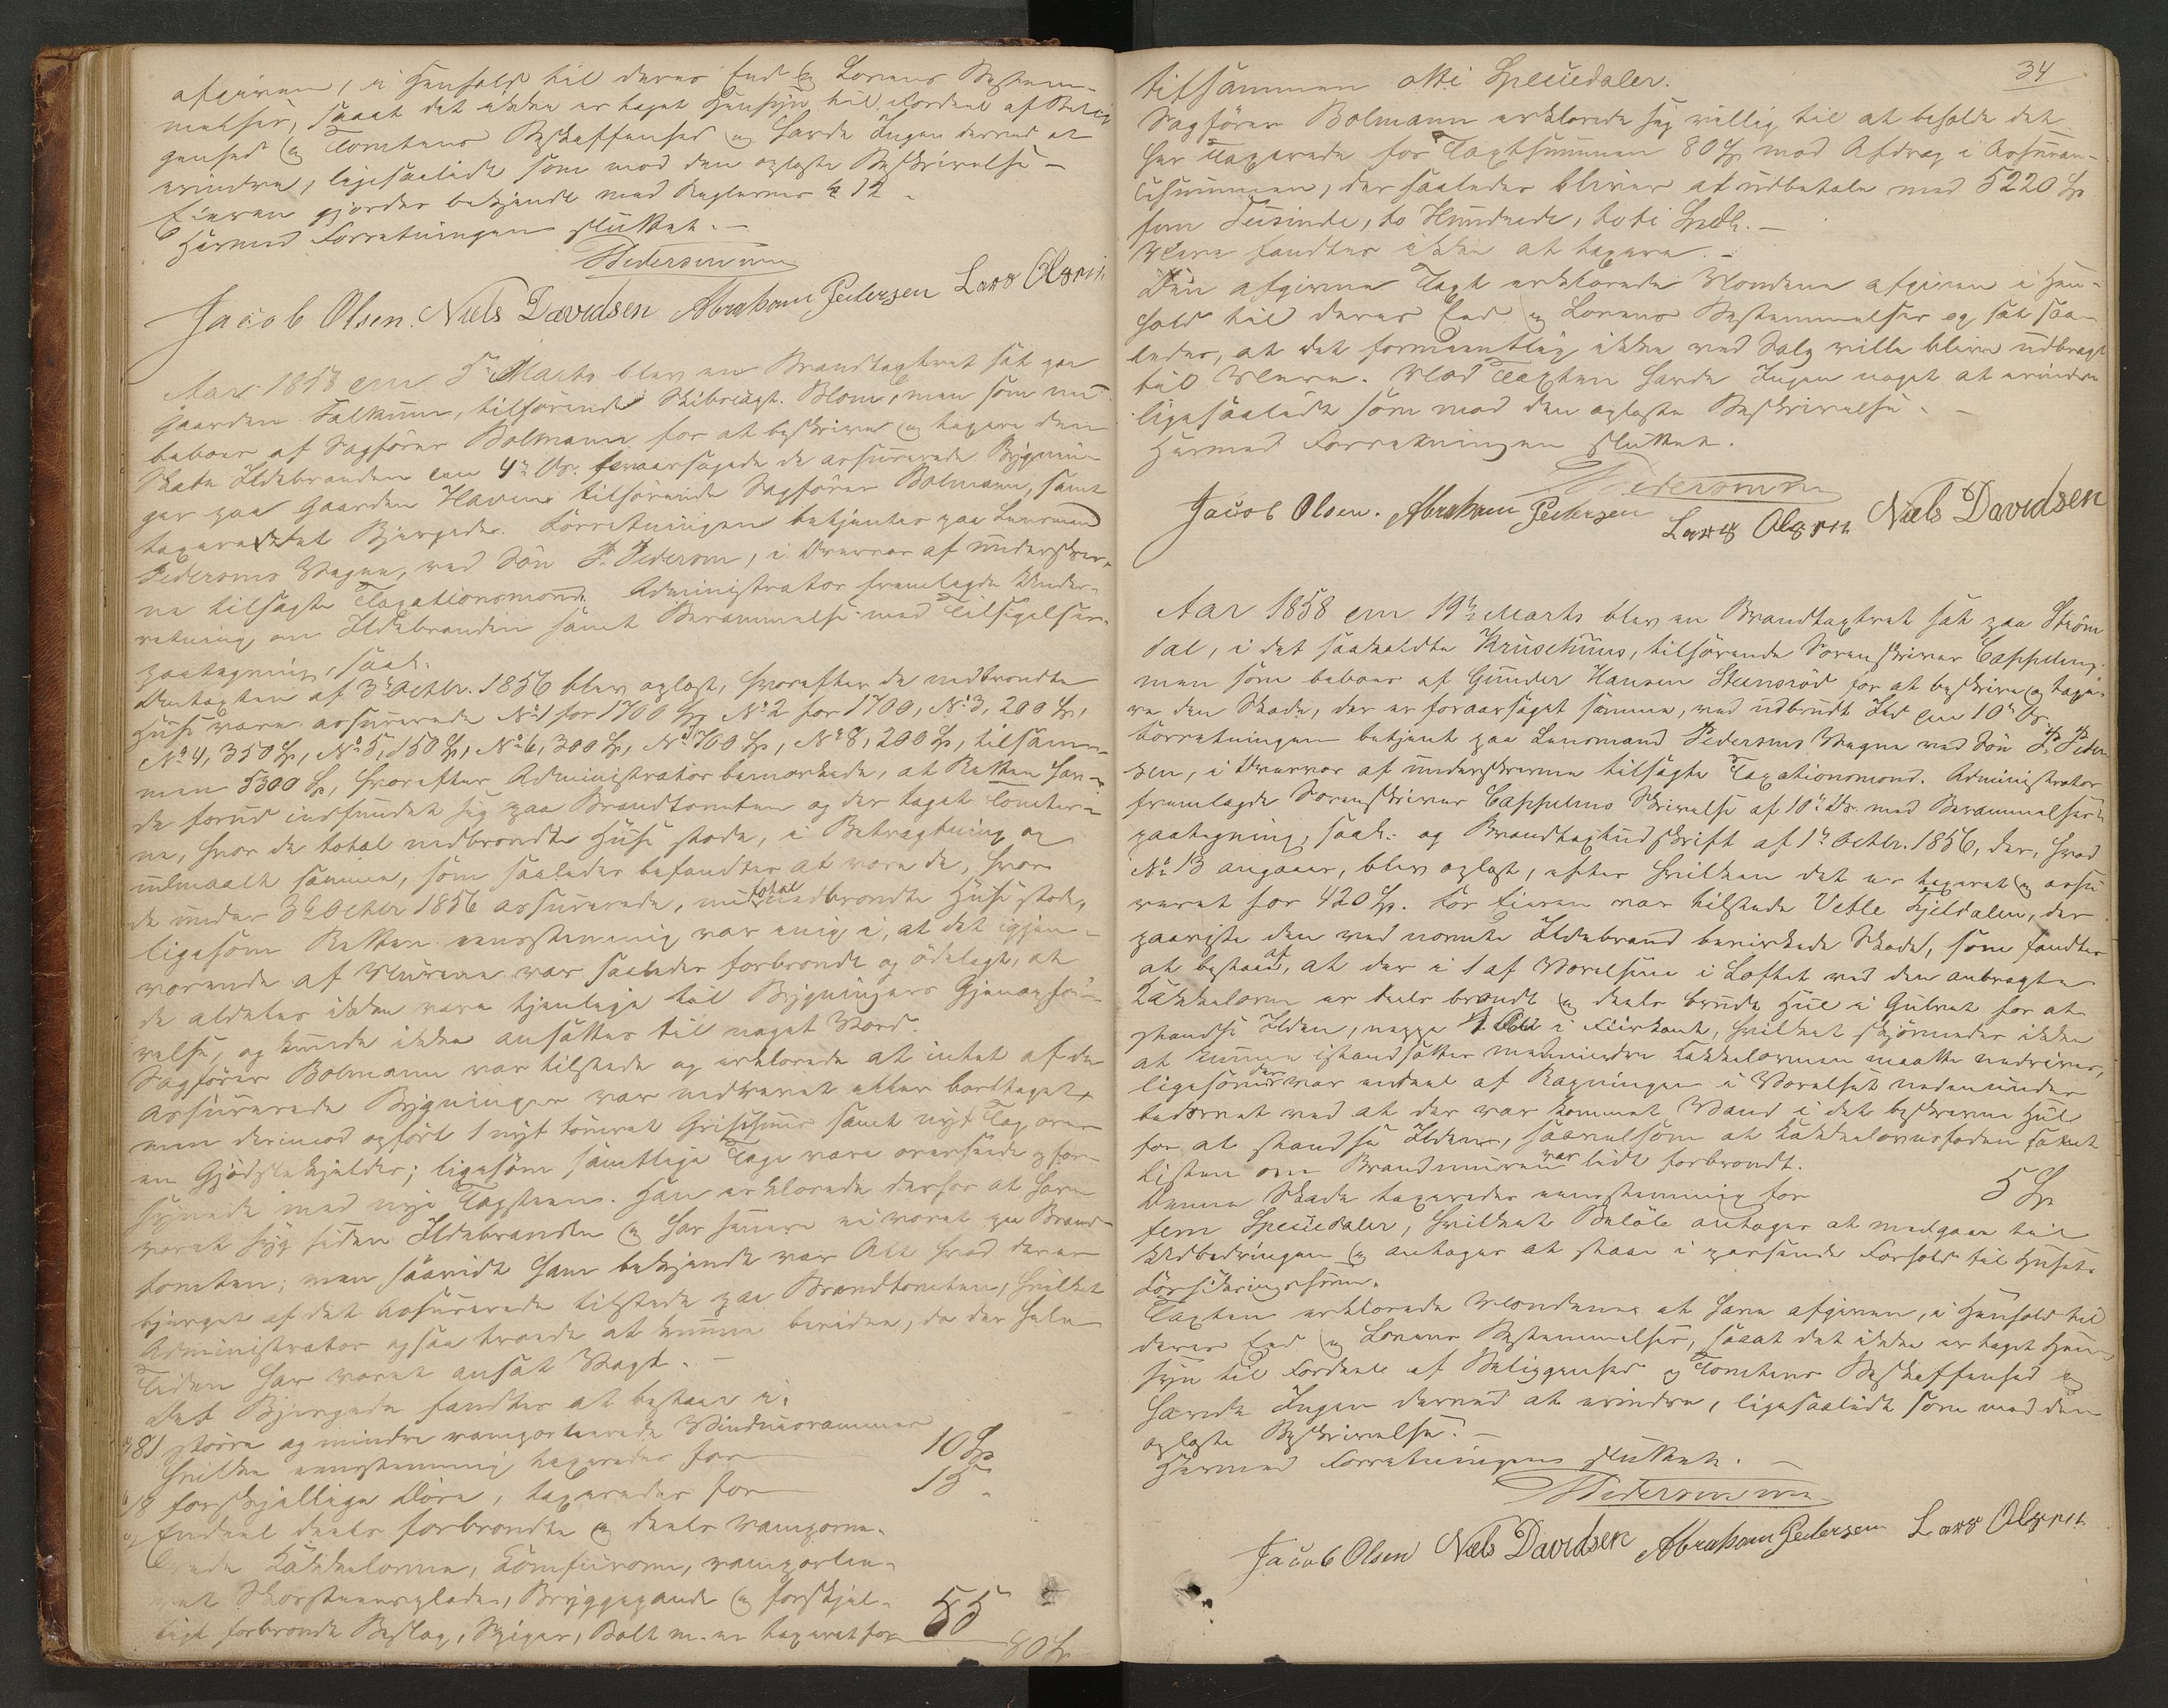 afgiven, i Henhold til deres Eed og Lovens Bestem-
melser, saaat det ikke er taget Hensyn til Fordeel af Belig
genhed og Tomtens Beskaffenhed og havde Ingen derved at
erindre, ligesaalidt som mod den oplæste Beskrivelse –
Eieren gjordes bekjendt med Reglernes § 12.
Hermed Forretningen sluttet. –
Pedersen
Jacob Olsen. Niels Davidsen Abraham Pedersen Lars Olsen
Aar 1858 den 5te Marts blev en Brandtaxtret sat paa
Gaarden Falkum, tilhørende Skibscapt. Blom, men som nu
beboes af Sagfører Bolmann for at beskrive og taxere den
Skade Ildebranden den 4de ds. foraarsagede de assurerede Bygnin-
ger paa Gaarden Haven tilhørende Sagfører Bolmann, samt
taxere det Bjergede. Forretningen betjentes paa Lensmand
Pedersens Vegne, ved Søn P. Pedersen, i Overvær af underskrev-
ne tilsagte Taxationsmænd. Administrator fremlagde Under-
retning om Ildebranden samt Berammelse med Tilsigelses-
paategning, saal.
Omtaxten af 3de Octbr. 1856 blev oplæst, hvorefter de nedbrændte
Huse vare assurerede No 1 for 1700 Sp No 2 for 1700, No 3, 200 Sp,
No 4, 350 Sp, No 5, 150 Sp, No 6, 300 Sp, No 7 700 Sp, No 8, 200 Sp, tilsam-
men 5300 Sp, hvorefter Administrator bemærkede, at Retten hav-
de forud indfundet sig paa Brandtomten og der taget Tomter-
ne, hvor de total nedbrændte Huse stode, i Betragtning og
udmaalt samme, som saaledes befandtes at være de, hvor
de under 3de Octbr 1856 assurerede, nu total nedbrændte Huse stode,
ligesom Retten eenstemmig var enig i, at det igjen-
værende af Murene var saaledes forbrændt og ødelagt, at
de aldeles ikke vare tjenlige til Bygningers Gjenopfø-
relse, og kunde ikke ansættes til noget Værd.
Sagfører Bolmann var tilstede og erklærede at intet af de
assurerede Bygninger var nedrevet eller borttaget,
men derimod opført 1 nyt tømret Grisehuus samt nyt Tag over
en Gjødselkjelder; ligesom samtlige Tage vare overseede og for-
synede med nye Tagsteen. Han erklærede derhos at have
været syg siden Ildebranden og har senere ei været paa Brand-
tomten; men saavidt ham bekjendt var Alt hvad der er
bjerget af det Assurerede tilstede paa Brandtomten, hvilket
Administrator ogsaa troede at kunne bevidne, da der hele
Tiden har været ansat Vagt. –
Det Bjergede fandtes at bestaae i:
a) 81 større og mindre ramponerede Vinduesrammer
hvilke eenstemmig taxeredes for 10 Sp
b) 18 forskjellige Døre, taxeredes for 15 "
c) Endeel deels forbrændte og deels rampone-
rede Kakkelovne, Komfurovne, rampone-
ret Skorsteensplader, Bryggepande og forskjel-
ligt forbrændt Beslag, Spiger, Bolt m. m taxeret for 55
80 Sp.
34
tilsammen otti Speciedaler.
Sagfører Bolmann erklærede sig villig til at beholde det
her Taxerede for Taxtsummen 80 Sp mod Afdrag i Assuran-
cesummen, der saaledes bliver at udbetale med 5220 Sp
fem Tusinde, to Hundrede, toti Spdlr. –
Mere fandtes ikke at taxere. –
Den afgivne Taxt erklærede Mændene afgiven i Hen-
hold til deres Eed og Lovens Bestemmelser og sat saa-
ledes, at det formeentlig ikke ved Salg ville blive udbragt
til Mere. Mod Taxten havde Ingen noget at erindre
ligesaalidt som mod den oplæste Beskrivelse. –
Hermed Forretningen sluttet.
Pedersen
Jacob Olsen. Abraham Pedersen Lars Olsen Niels Davidsen
Aar 1858 den 19de Marts blev en Brandtaxtret sat paa Strøm
dal, i det saakaldte Kruschuus, tilhørende Sorenskriver Cappelen,
men som beboes af Gunder Hansen Steensrød for at beskrive og taxe-
re den Skade, der er foraarsaget samme, ved udbrudt Ild den 10de ds.
Forretningen betjent paa Lensmand Pedersens Vegne ved Søn P. Peder
sen, i Overvær af underskrevne tilsagte Taxationsmænd. Administrator
fremlagde Sorenskriver Cappelens Skrivelse af 10de ds. med Berammelses-
paategning, saal. og Brandtaxtudskrift af 1ste Octbr. 1856, der, hvad
No 13 angaaer, blev oplæst, efter hvilken det er taxeret og assu
reret for 420 Sp. For Eieren var tilstede Vetle Fjeldalen, der
paaviste den ved nævnte Ildebrand bevirkede Skade, som fandtes
at bestaae af, at der i 1 af Værelserne i Loftet ved den anbragte
Kakkelovn er deels brændt og deels brudt Hul i Gulvet for at
standse Ilden, neppe 1 Al i Fiirkant, hvilket skjønnedes ikke
at kunne istandsættes medmindre Kakkelovnen maatte nedrives,
ligesom der var endeel af Rapningen i Værelset nedenunder
bedærvet ved at der var kommet Vand i det beskrevne Hul
for at standse Ilden, saavelsom at Kakkelovnsfoden samt
Listen om Brandmuren var lidt forbrændt.
Denne Skade taxeredes eenstemmig for 5 Sp
fem Speciedaler, hvilket Beløb antages at medgaae til
Udbedringen og antages at staae i passende Forhold til Husets
Forsikringssum.
Taxten erklærede Mændene at have afgiven, i Henhold til
deres Eed og Lovens Bestemmelser, saaat det ikke er taget Hen-
syn til Fordeele af Beliggenhed og Tomtens Beskaffenhed og
havde Ingen derved at erindre, ligesaalidt som mod den
oplæste Beskrivelse. –
Hermed Forretningen sluttet. –
Pedersen
Jacob Olsen Niels Davidsen Abraham Pedersen Lars Olsen